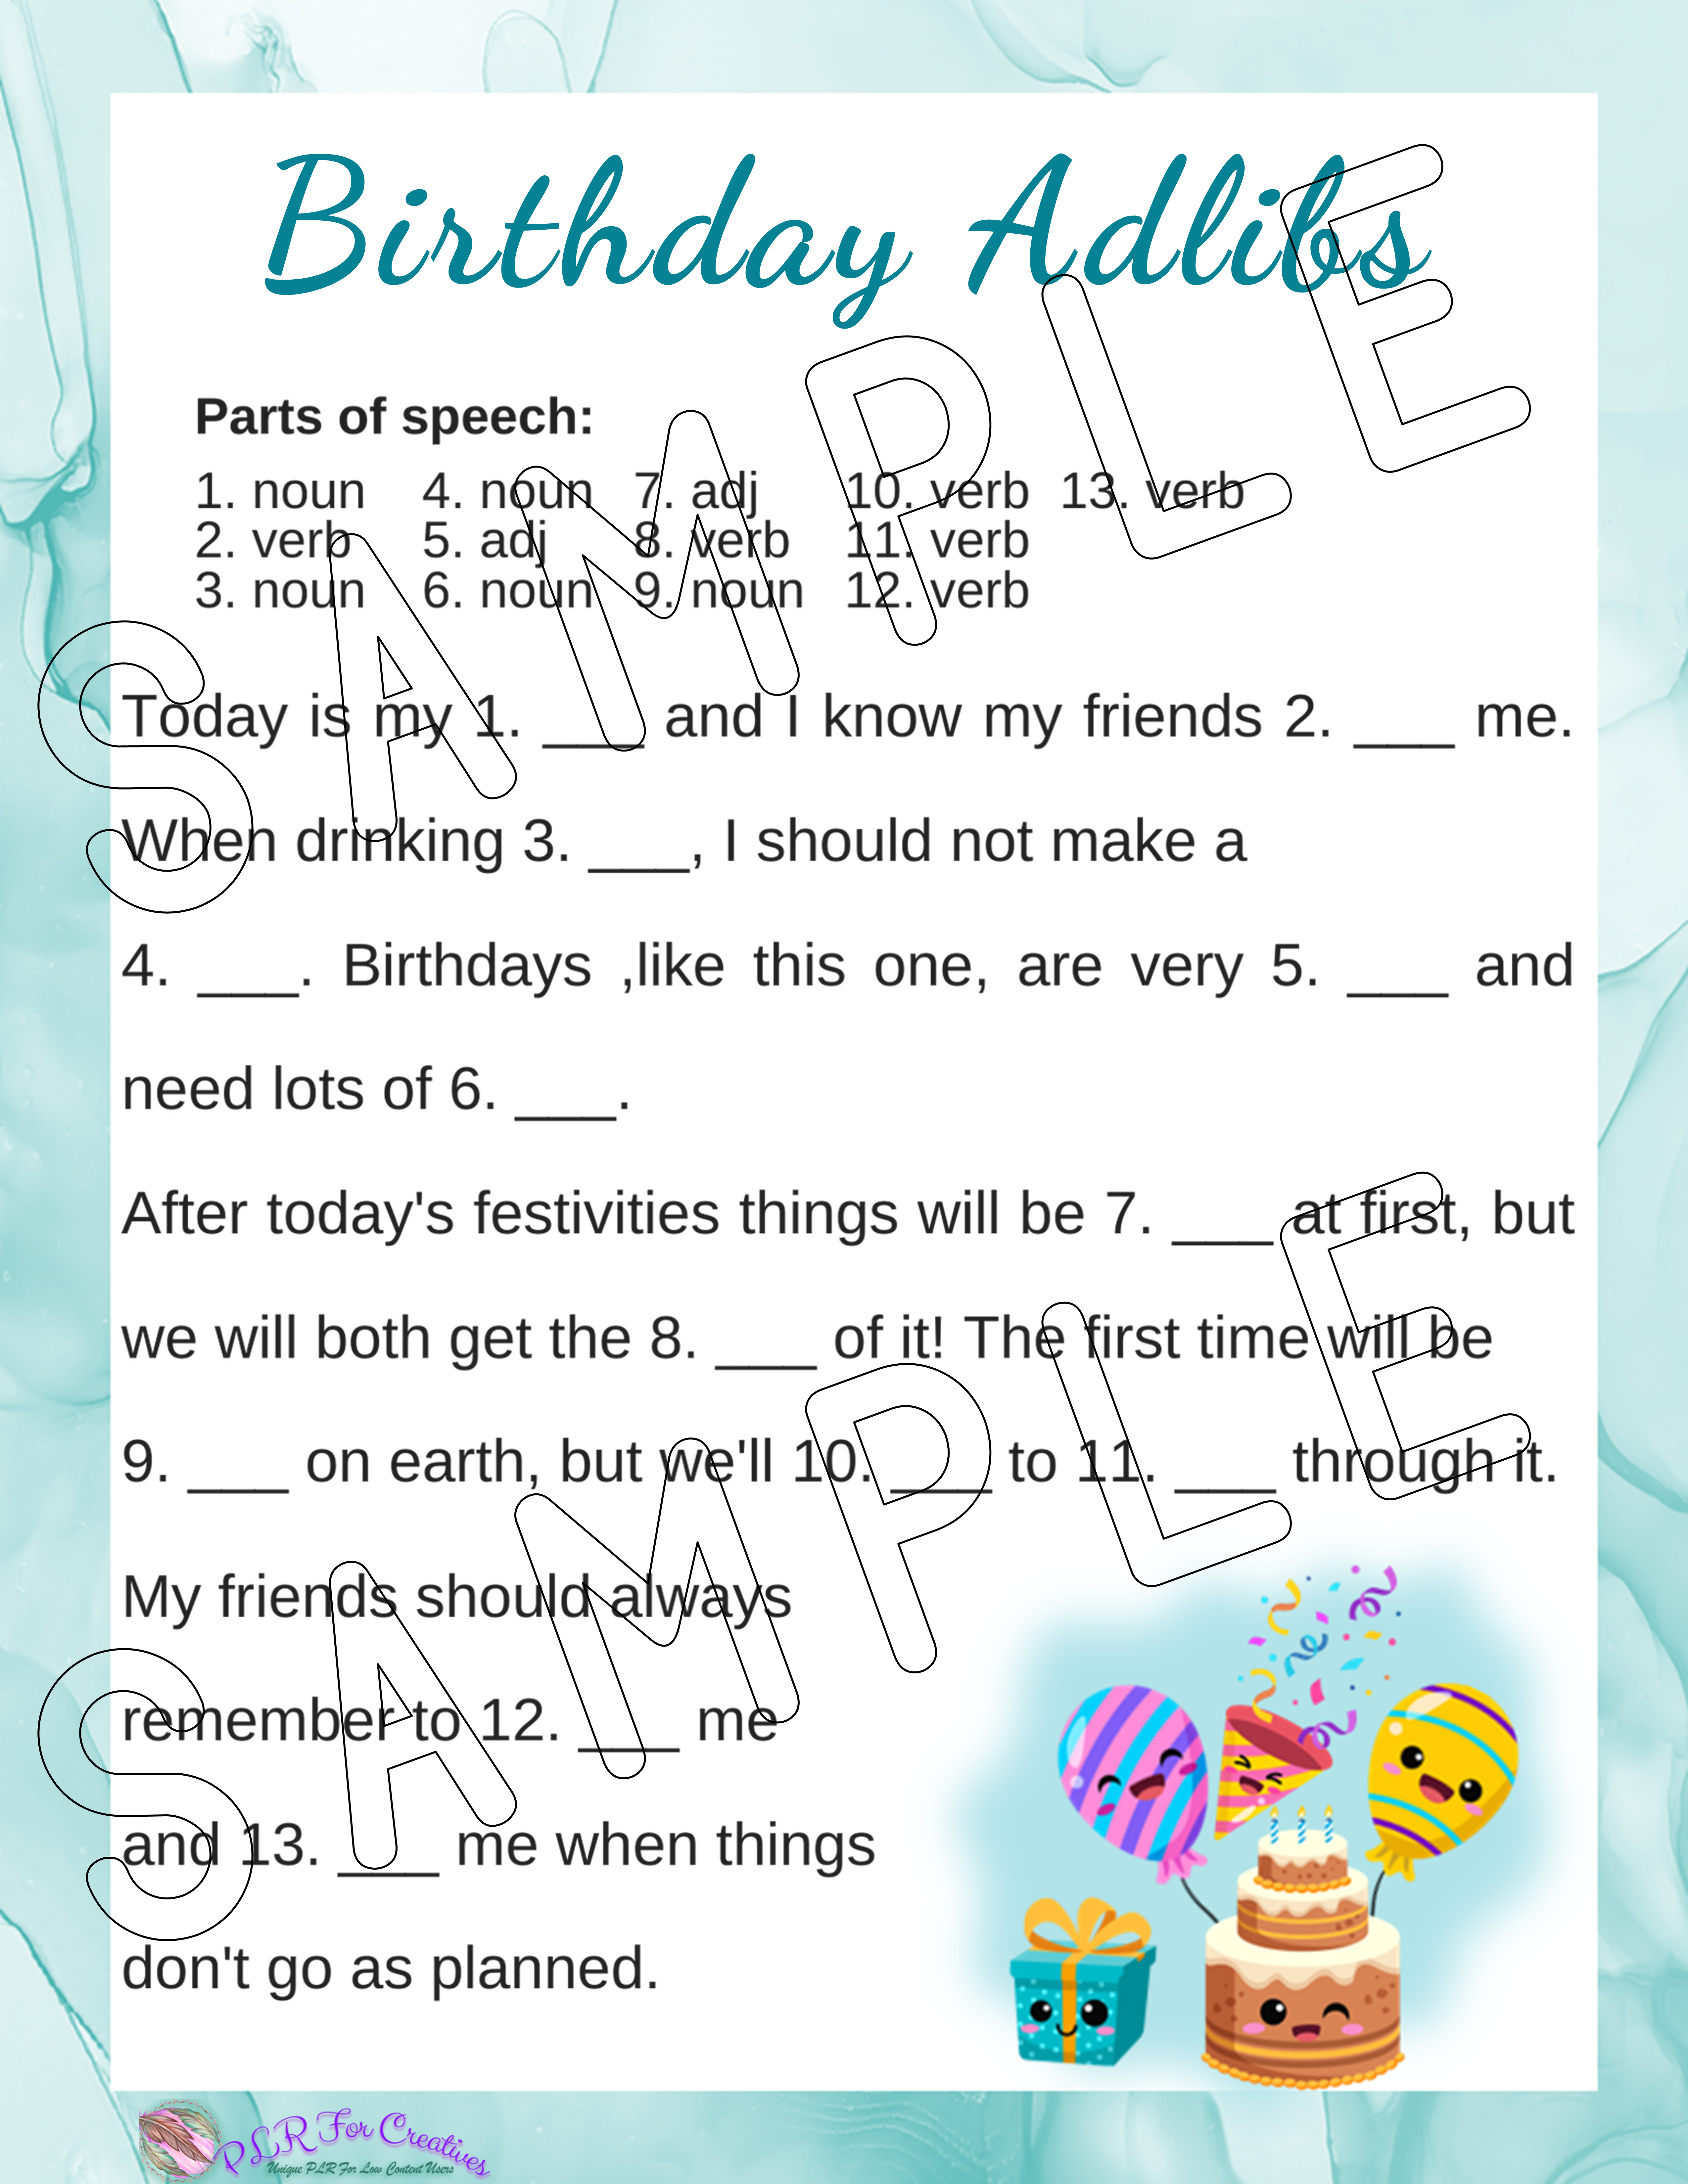 Birthday Adlibs
Parts of speech:
1. noun 4. noun 7. adj 10. verb 13. verb
2. verb 5. adj 8. verb 11. verb
3. noun 6. noun 9. noun 12. verb
Today is my 1. ___ and I know my friends 2. ___ me.
When drinking 3. ___, I should not make a
4. ___. Birthdays ,like this one, are very 5. ___ and
need lots of 6. ___.
After today's festivities things will be 7. ___ at first, but
we will both get the 8. ___ of it! The first time will be
9. ___ on earth, but we'll 10. ___ to 11. ___ through it.
My friends should always
remember to 12. ___ me
and 13. ___ me when things
don't go as planned.
SAMPLE
SAMPLE
PLR For Creatives
Unique PLR For Low Content Users